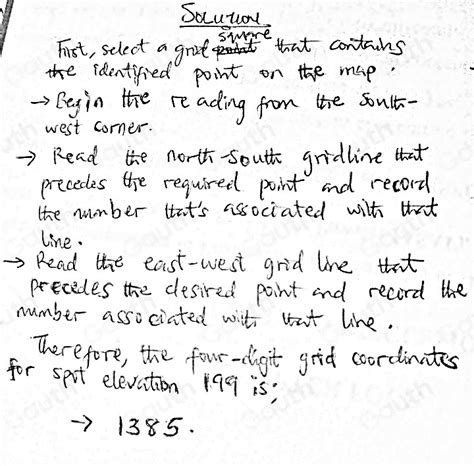 Solution
First, select a grid square that contains
the identified point on the map.
→ Begin the reading from the South-
west corner.
→ Read the north-south gridline that
precedes the required point and record
the number that's associated with that
line.
→ Read the east-west grid line that
precedes the desired point and record the
number associated with that line.
Therefore, the four-digit grid coordinates
for spot elevation 199 is;
→ 1385.